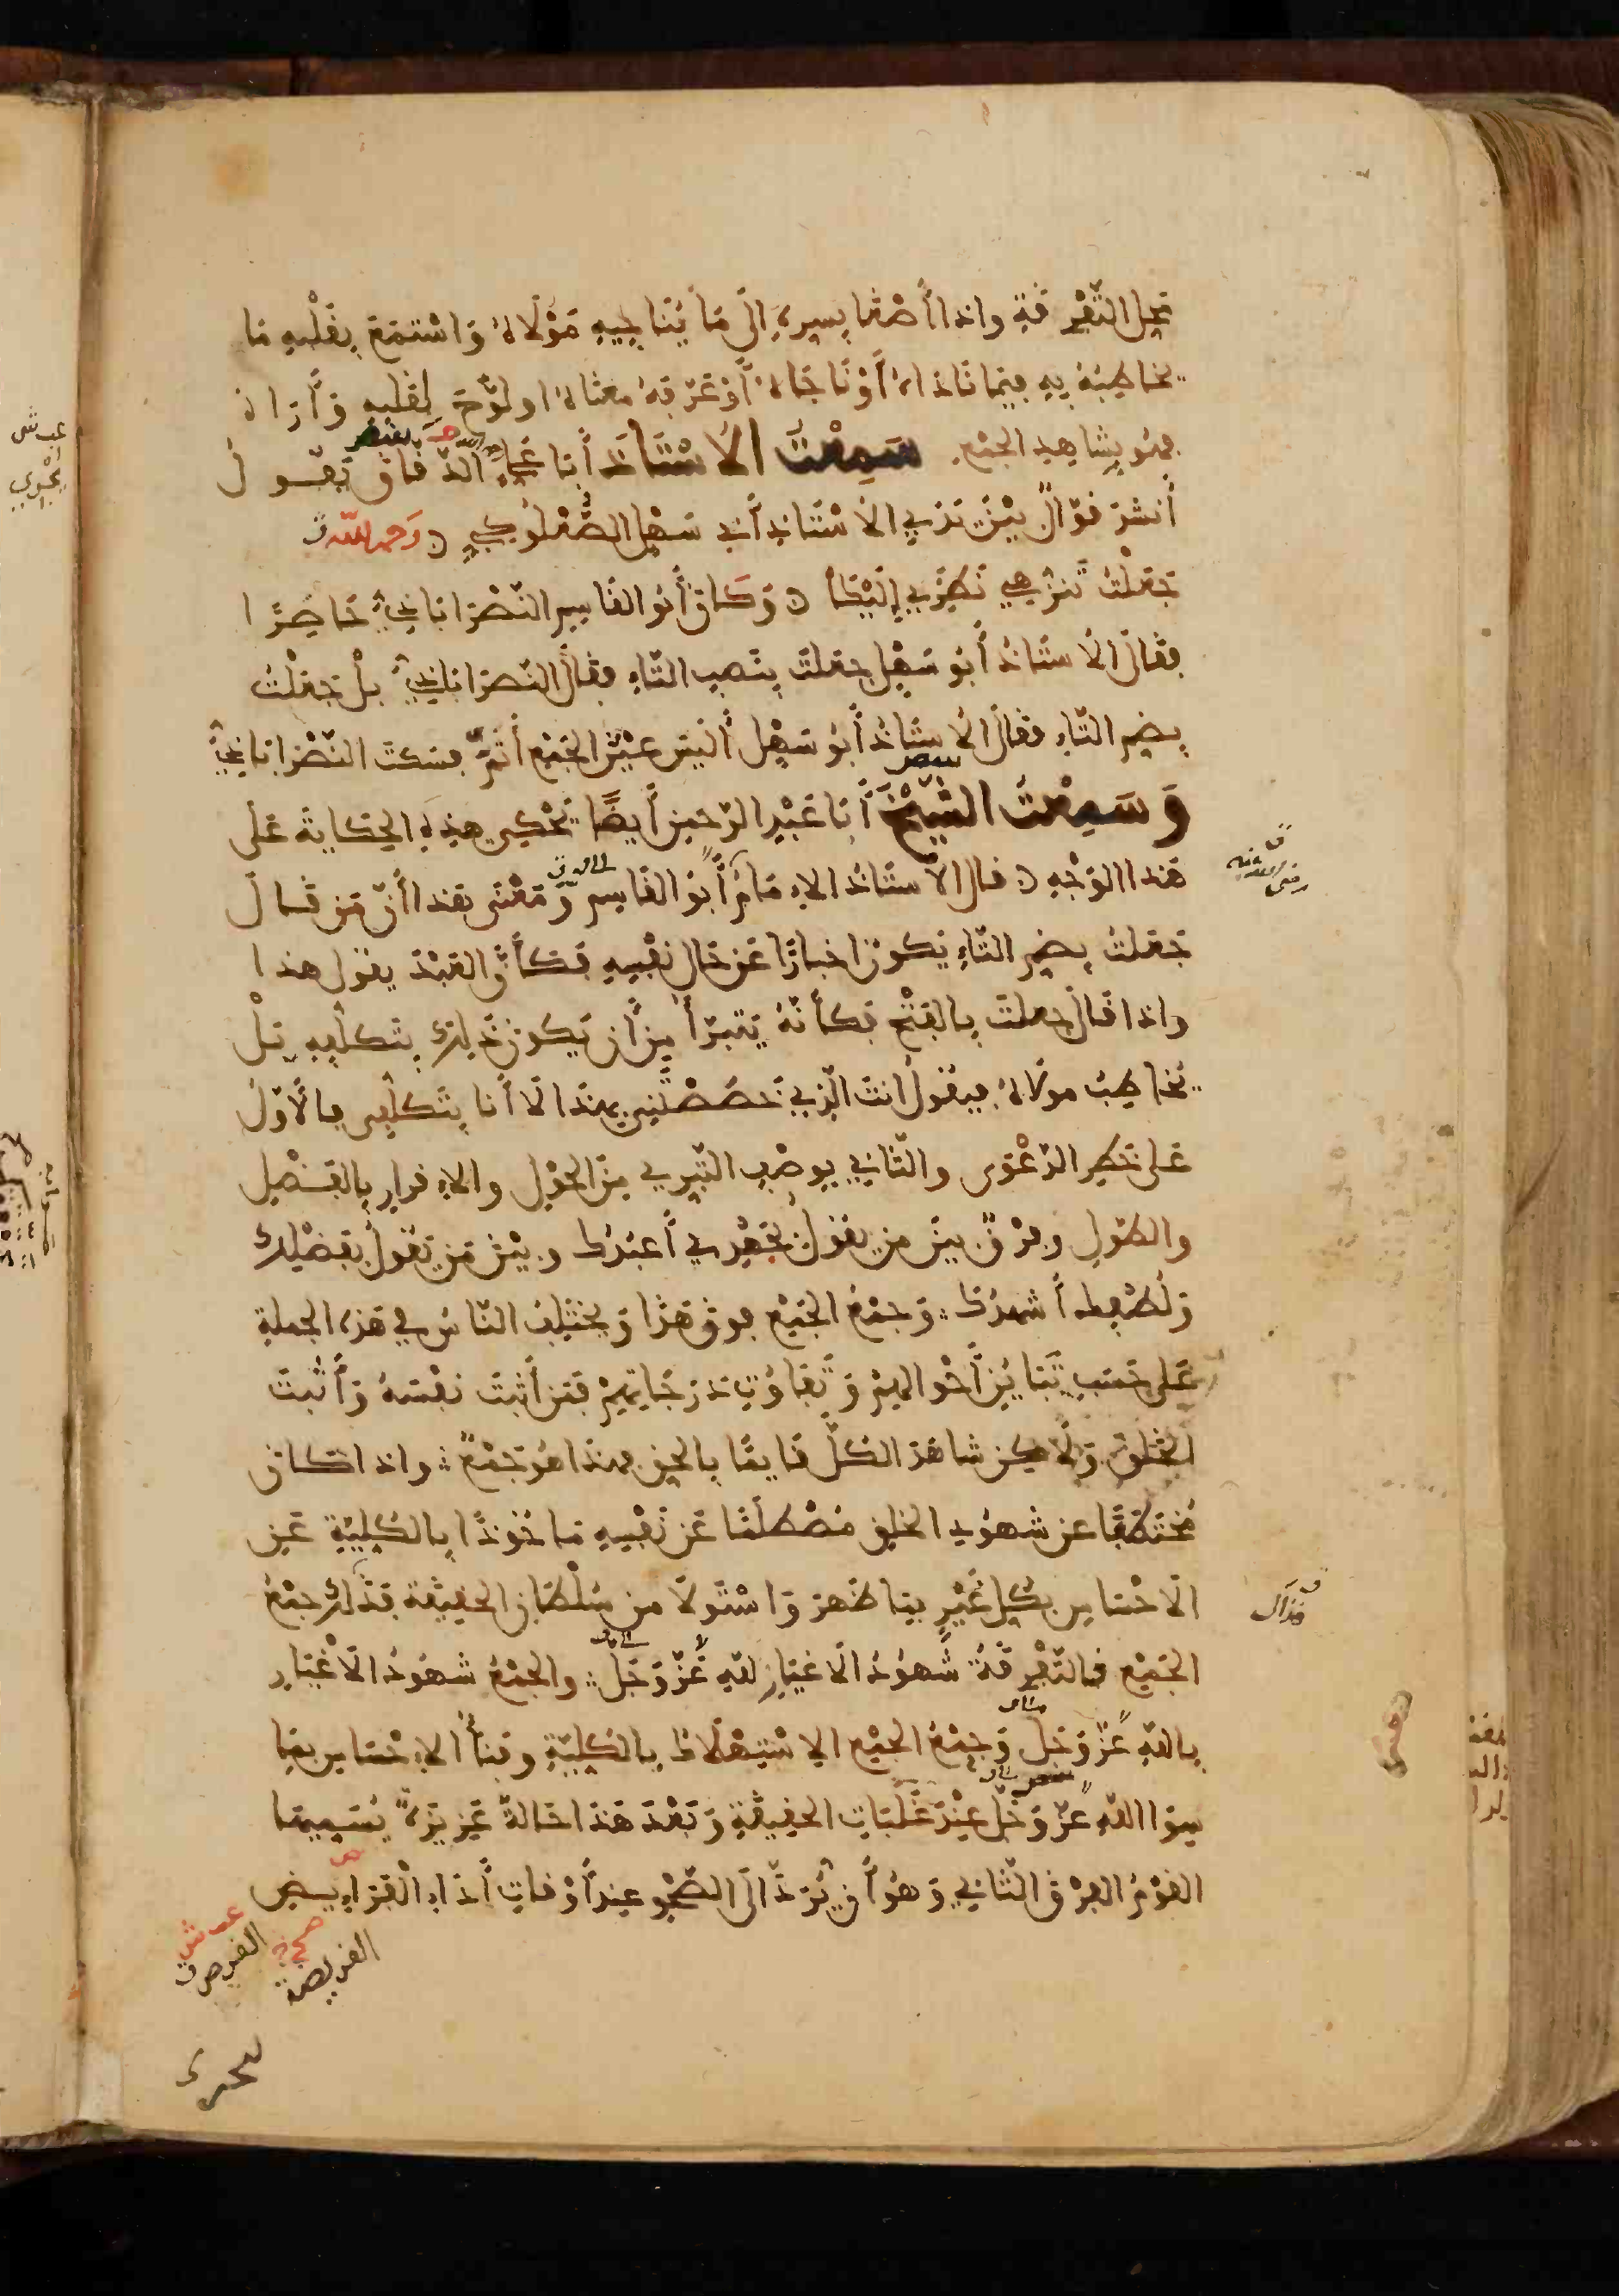 مَحِلِّ التَّفْرِقَةِ وإذا أَصْغَا بِسِرِّهِ إلَى مَا يُنَاجِيهِ مَوْلَاهُ وَاسْتَمَعَ بِقَلْبِهِ مَا
يُخَاطِبُهُ بِهِ فِيمَا نَادَاهُ أَوْ نَاجَاهُ أَوْ عَرَّفَهُ مَعْنَاهُ او لَوَّحَ لِقَلْبِهِ وَأَرَاهُ
فَهُوَ بِشَاهِدِ الجَمْعِ. سَمِعْتُ الأُسْتَاذَ أَبَا عَلِيٍّ الدَّقَاقَ يَقُولُ
أَنشدَ قَوَّالٌ بَيْنَ يَدَيِ الأُسْتَاذِ أَبِي سَهْلٍ الصُّعْلُوكِيِّ رَحِمَهُ اللهُ
جَعَلْتُ تَنَزُّهِي نَظَرِي إِلَيْكَا وَكَانَ أَبُو القَاسِمِ النَّصْرَابَاذِيُّ حَاضِرًا
فقالَ الأُستَاذُ أَبُو سَهْلٍ جعلتَ بِنَصبِ التَّاءِ فقَالَ النَّصرَابَاذِيُّ بلْ جَعَلْتُ
بِضَمِ التَّاءِ فقالَ الأُستَاذُ أَبُو سَهْلٍ أَلَيْسَ عَيْنُ الجَمْعِ أَتَمَّ فسَكتَ النَّصْرَابَاذِيُّ
وَسَمِعْتُ الشَّيْخَ أَبَا عَبْدِ الرَّحمنِ أَيضًا يَحْكِي هذِهِ الحِكَايةَ عَلَى
هَذا الوَجْهِ قال الأُستَاذُ الإِمَامُ أَبُو القَاسِمِ وَمَعْنَى هَذا أَنَّ مَن قَالَ
جَعَلتُ بِضَمِّ التَّاءِ يَكونُ اخبارًا عَن حَالِ نَفْسِهِ فَكَأَنَّ العَبْدَ يقُول هذا
واذا قَالَ جعلتَ بالفَتْحِ فكَأَنَّهُ يَتَبَرَّأُ مِنْ أَن يَكونَ ذَلِكَ بِتَكَلُّفِهِ بَلْ
يُخاطِبُ مولَاهُ فيقولُ انتَ الَّذِي خَصَصْتَنِي بهذَا لَا أَنَا بِتَكَلُّفِي فالأَوَّلُ
عَلى خَطَرِ الدَّعْوَى والثَّانِي بِوصْفِ التَّبرِي مِنَ الحَوْلِ والإِقرارِ بِالفَضْلِ
والطَّوْلِ وفَرْقٌ بينَ من يقُولُ بِجُهْدِي أَعبُدُكَ وبَيْنَ مَن يَقُولُ بِفَضْلِكَ
وَلُطْفِكَ أَشهدُكَ وَجَمْعُ الجَمْعِ فوقَ هَذَا وَيختَلِفُ النَّاسُ فِي هَذِهِ الجملةِ
عَلى حَسَبِ تَبَايُنِ أَحْوالِهِمْ وَتَفَاوُتِ دَرَجَاتِهِمْ فَمَن أَثبتَ نَفْسَهُ وَأَثْبتَ
الخَلقَ وَلَاكِن شَاهَدَ الكُلَّ قَايمًا بِالحَقِّ فهذَا هُوَ جَمْعٌ واذا كَانَ
مُختَطَفًا عن شهُودِ الخلقِ مُصْطَلَمًا عَن نَفْسِهِ مَاخُوذًا بِالكُلِّيَّةِ عَنِ
الاحْسَاسِ بِكُلِّ غَيْرٍ بِمَا ظَهَرَ وَاسْتَولَا من سُلْطَانِ الحَقِيقَةِ فَذَاكَ جَمْعُ
الجَمْعِ فالتَّفْرِقَةُ شُهُودُ الأغيَارِ للهِ عَزَّ وَجَلَّ والجَمْعُ شهُودُ الأَغْيَارِ
بِاللهِ عَزَّ وَجَلَّ وَجَمْعُ الجَمْعِ الاِسْتِهْلَاكُ بالكُلِّيَّةِ وفَنَاءُ الاِحْسَاسِ بِمَا
سِوَا اللهِ عَزَّ وَجَلَّ عِنْدَ غَلَبَاتِ الحَقِيقَةِ وَبَعْدَ هَذَا حَالَةٌ عَزِيزَةٌ يُسَمِّيهَا
القَوْمُ الفَرْقَ الثَّانِي وَهُوَ أَن يُرَدَّ إلَى الصَّحْوِ عِندَ أَوْقَاتِ أَدَاءِ الفَرَايِضِ
رضي الله عنه
فذاك
الفرض
الفريضة